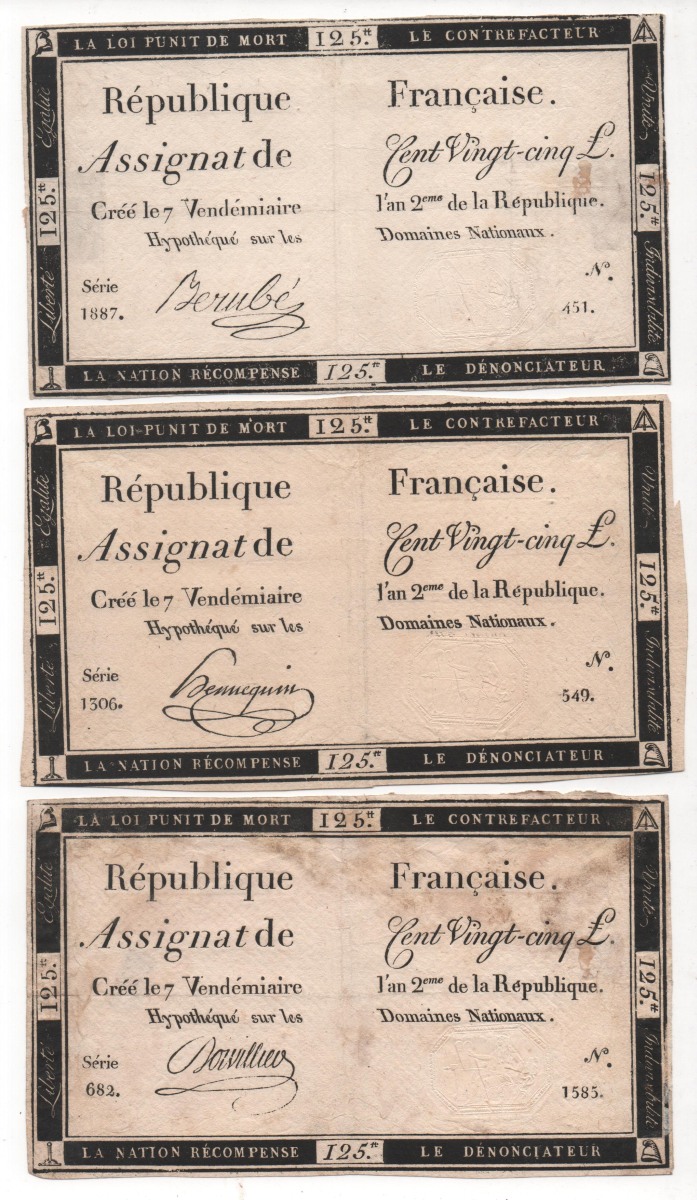 LA LOI PUNIT DE MORT 125.tt LE CONTREFACTEUR
Egalité
Unité
République Française.
Assignat de Cent Vingt-cinq ₤.
125.tt
125.tt
Créé le 7 Vendémiaire l'an 2eme de la République.
Hypothéqué sur les Domaines Nationaux.
Liberté
Indivisibilité
Série N.
1887. Berubé 451.
LA NATION RÉCOMPENSE 125.tt LE DÉNONCIATEUR
LA LOI PUNIT DE MORT 125.tt LE CONTREFACTEUR
Egalité
Unité
République Française.
Assignat de Cent Vingt-cinq ₤.
125.tt
125.tt
Créé le 7 Vendémiaire l'an 2eme de la République.
Hypothéqué sur les Domaines Nationaux.
Liberté
Indivisibilité
Série N.
1306. Hennequin 549.
LA NATION RÉCOMPENSE 125.tt LE DÉNONCIATEUR
LA LOI PUNIT DE MORT 125.tt LE CONTREFACTEUR
Egalité
Unité
République Française.
Assignat de Cent Vingt-cinq ₤.
125.tt
125.tt
Créé le 7 Vendémiaire l'an 2eme de la République.
Hypothéqué sur les Domaines Nationaux.
Liberté
Indivisibilité
Série N.
682. 1585.
LA NATION RÉCOMPENSE 125.tt LE DÉNONCIATEUR